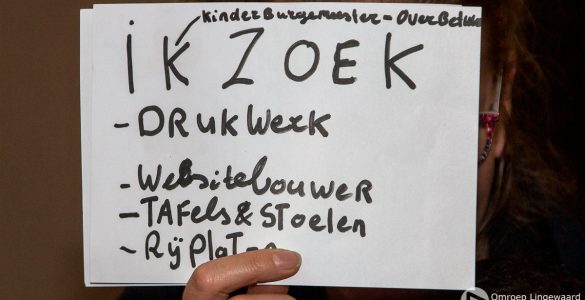 kinderBurgemeester - OverBetuwe
ik ZOEK
- DRukWerk
- WebsitebouweR
- TAFels & SToelen
- Rijplaten
Omroep Lingewaard